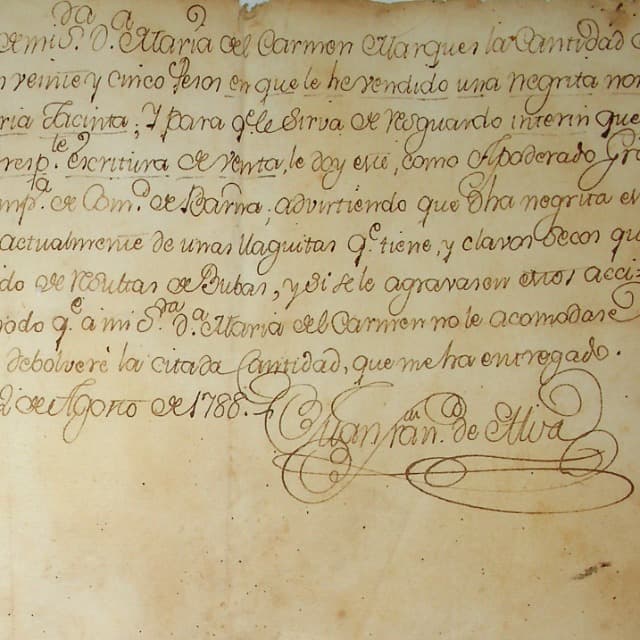 de mi S.ra D.a Maria del Carmen Marques la Cantidad
veinte y cinco pesos en que le he vendido una negrita nom
ria Jacinta; y para q.e le Sirva de resguardo interin que
resp.te escritura de venta, le doy este, como Apoderado
mp.a de Com.o de Barna; advirtiendo que dha negrita
actualmente de unas llaguitas q.e tiene, y clavos Secos qu
do de resultas de Bubas, y Si Se le agravasen estos acci=
modo q.e a mi S.ra D.a Maria del Carmen no le acomodare
debolveré la citada Cantidad, que me ha entregado.
de Agosto de 1788.
Juan Fran.co de Alva